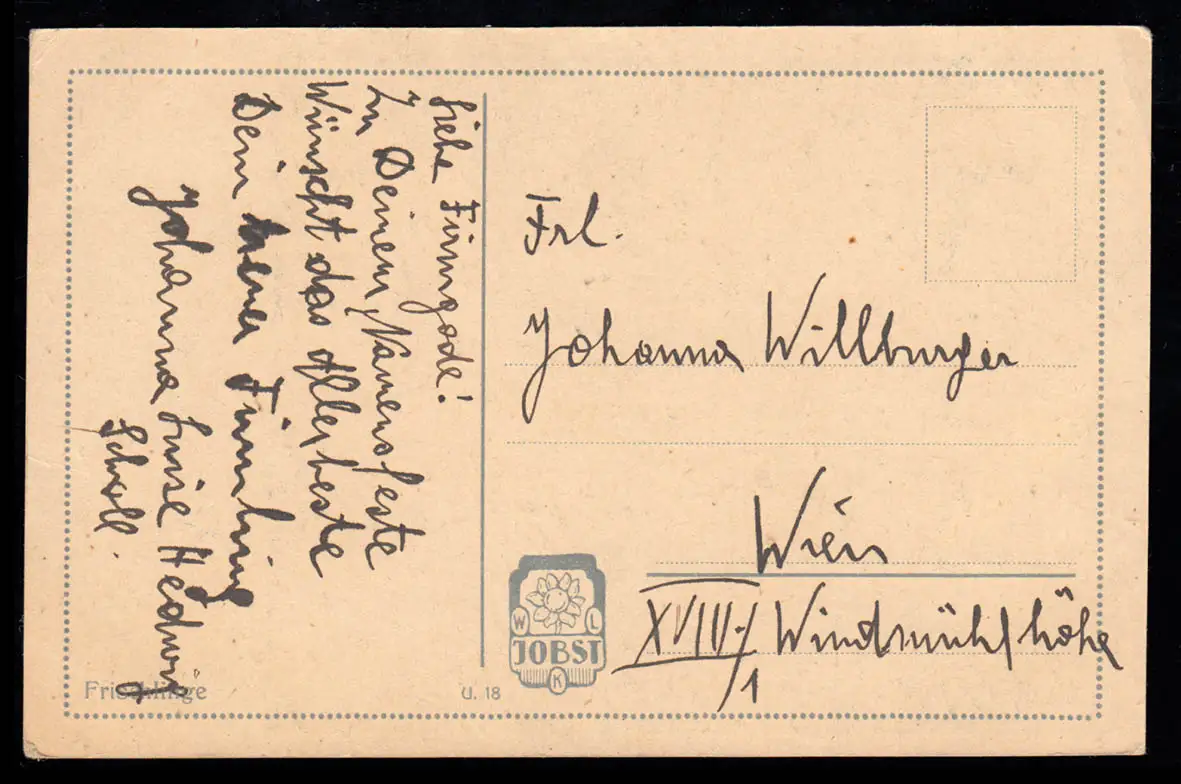 Liebe Firmgode!
Zu Deinem Namensfeste
Wünscht das Allerbeste
Dein
Johanna Luise Hedwig
Scholl.
Frl.
Johanna Willburger
Wien
XVIII./1 Windmühlhöhe
W L
JOBST
K
Frischlinge
U. 18